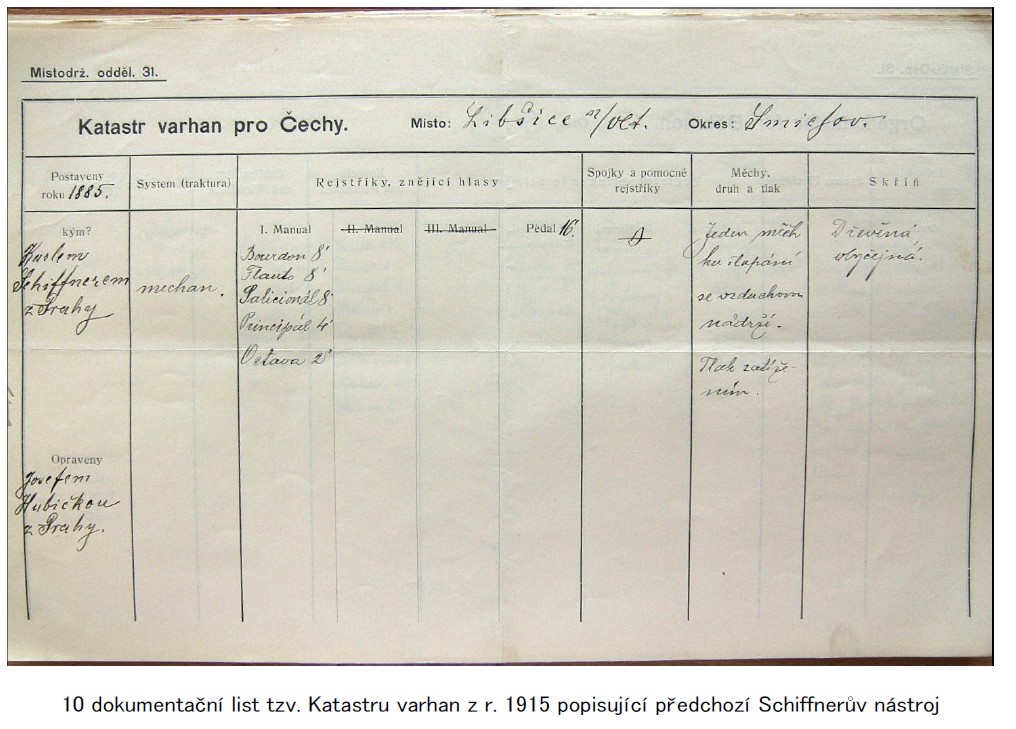 Místodrž. odděl. 31.
Katastr varhan pro Čechy. Místo: Libšice n/Vlt. Okres: Smichov.
Postaveny roku 1885.
System (traktura)
Rejstříky, znějící hlasy
Spojky a pomocné rejstříky
Měchy, druh a tlak
Skříň
kým?
Karlem
Schiffnerem
z Prahy
mechan.
I. Manual
Bourdon 8'
Flauto 8'
Salicionál 8'
Principál 4'
Octava 2'
II. Manual
III. Manual
Pedal 16'.
0
Jeden měch
ku šlapání
se vzduchovou
nádrží.
Tlak zatíže-
ním.
Dřevěná,
obyčejná.
Opraveny
Josefem
Hubičkou
z Prahy.
10 dokumentační list tzv. Katastru varhan z r. 1915 popisující předchozí Schiffnerův nástroj